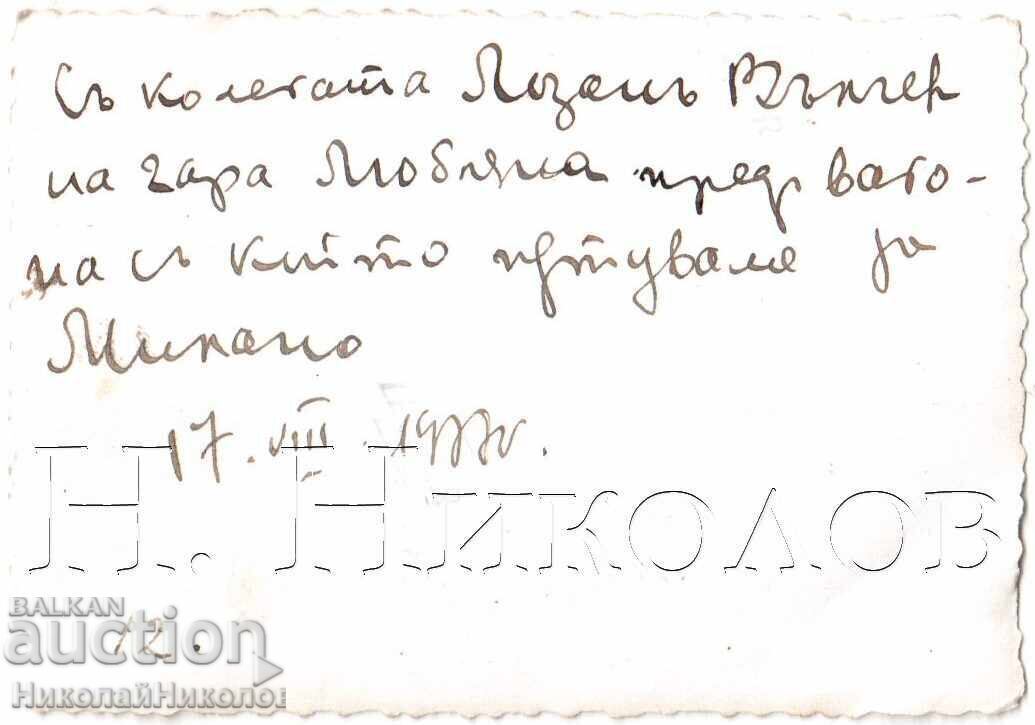 Съ колегата Лозанъ Вълчев
на гара Любляна пред ваго-
на съ който пътуваме за
Милано
17. VIII.
Н. Николов
BALKAN
auction
НиколайНиколов
12.